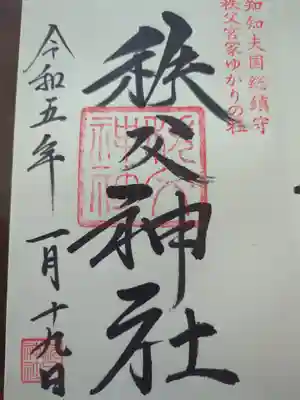 知知夫国総鎮守
秩父宮家ゆかりの社
秩父神社
令和五年 一月 十九日